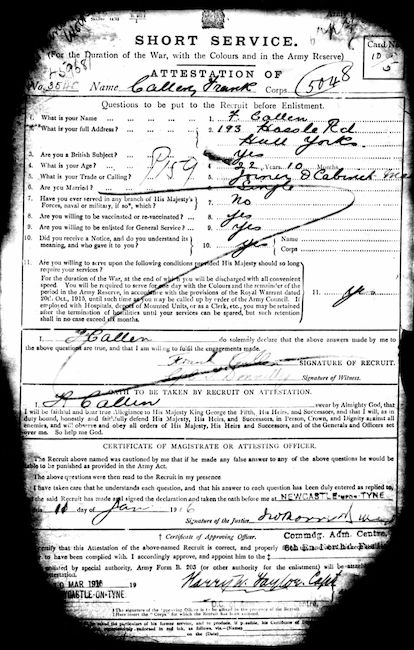 SHORT SERVICE.
(For the Duration of the War, with the Colours and in the Army Reserve)
ATTESTATION OF
Card No.
No. Name Callen, Frank Corps 5048
Questions to be put to the Recruit before Enlistment.
1. What is your Name 1. F. Callen
2. What is your full Address? 2. 193 Hessle Rd
Hull Yorks.
3. Are you a British Subject? 3. Yes
4. What is your Age? 4. 22 Years 10 Months
5. What is your Trade or Calling? 5. Joiner & Cabinet
6. Are you Married? 6. Single
7. Have you ever served in any branch of His Majesty's
Forces, naval or military, if so*, which? 7. No
8. Are you willing to be vaccinated or re-vaccinated? 8. Yes
9. Are you willing to be enlisted for General Service? 9. Yes
10. Did you receive a Notice, and do you understand its
meaning, and who gave it to you? 10. Yes Name
Corps
11. Are you willing to serve upon the following conditions provided His Majesty should so long
require your services?
For the duration of the War, at the end of which you will be discharged with all convenient
speed. You will be required to serve for one day with the Colours and the remainder of the
period in the Army Reserve, in accordance with the provisions of the Royal Warrant dated
20th Oct., 1915, until such time as you may be called up by order of the Army Council. If
employed with Hospitals, depots of Mounted Units, or as a Clerk, etc., you may be retained
after the termination of hostilities until your services can be spared, but such retention
shall in no case exceed six months. 11. Yes
I, F Callen do solemnly declare that the above answers made by me to
the above questions are true, and that I am willing to fulfil the engagements made.
SIGNATURE OF RECRUIT.
Signature of Witness.
OATH TO BE TAKEN BY RECRUIT ON ATTESTATION.
I, F Callen swear by Almighty God, that
I will be faithful and bear true Allegiance to His Majesty King George the Fifth, His Heirs, and Successors, and that I will, as in
duty bound, honestly and faithfully defend His Majesty, His Heirs, and Successors, in Person, Crown, and Dignity against
all enemies, and will observe and obey all orders of His Majesty, His Heirs and Successors, and of the Generals and Officers set
over me. So help me God.
CERTIFICATE OF MAGISTRATE OR ATTESTING OFFICER.
The Recruit above named was cautioned by me that if he made any false answer to any of the above questions he would
be liable to be punished as provided in the Army Act.
The above questions were then read to the Recruit in my presence
I have taken care that he understands each question, and that his answer to each question has been duly entered as replied to,
the said Recruit has made and signed the declaration and taken the oath before me at NEWCASTLE-UPON-TYNE
day of Jan 1916
Signature of the Justice
† Certificate of Approving Officer. Commdg. Adm. Centre,
certify that this Attestation of the above-named Recruit is correct, and properly
to have been complied with. I accordingly approve, and appoint him to the ‡
by special authority, Army Form B. 203 (or other authority for the enlistment) will be
attestation.
MAR 1916 19 Harry W. Taylor Capt
-ON-TYNE
†The signature of the Approving Officer is to be affixed in the presence of the Recruit.
‡Here insert the "Corps" for which the Recruit has been enlisted.